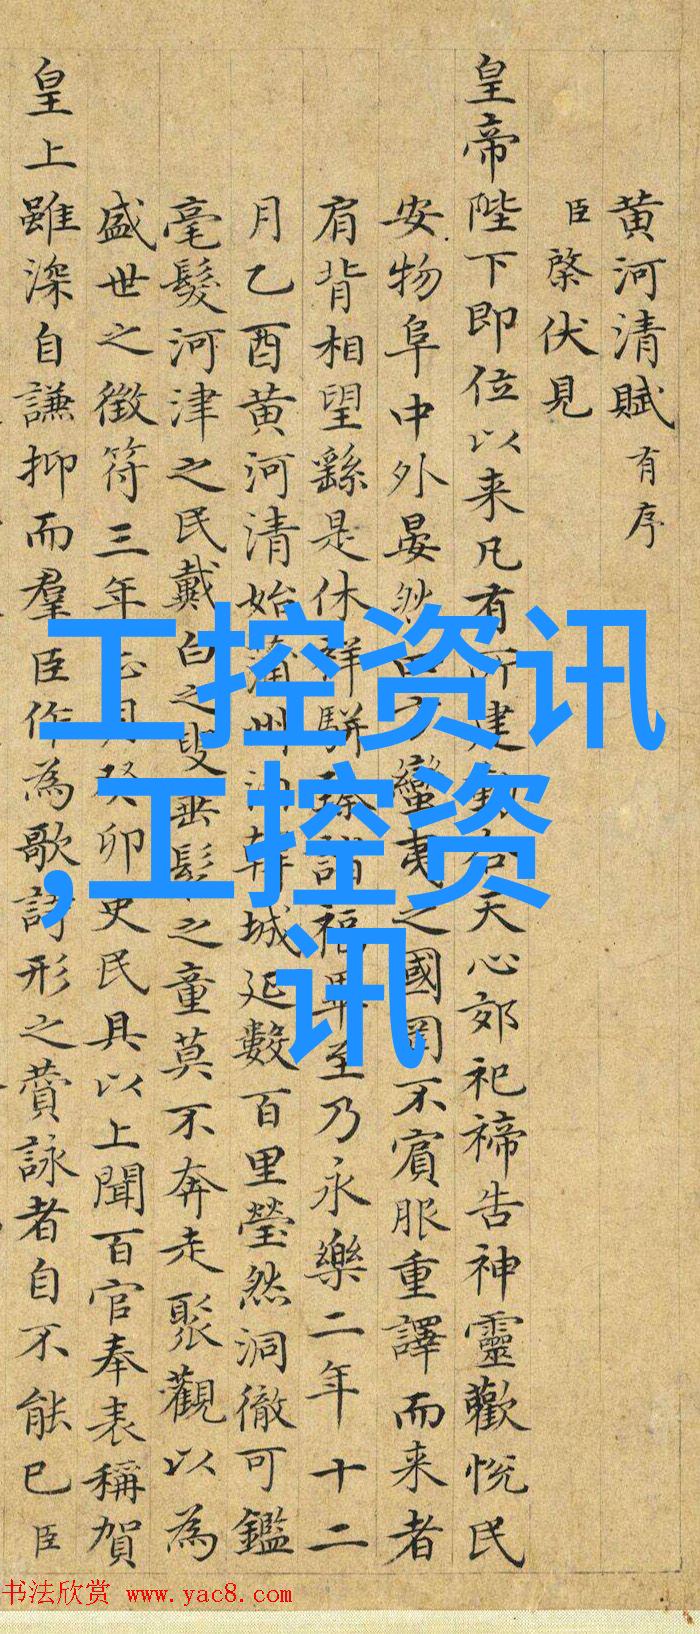 黄河清賦有序
臣棨伏見
皇帝陛下即位以来凡有所建動合天心郊祀禘告神靈歡悅民
安物阜中外晏然四方蠻夷之國罔不賓服重譯而来者
肩背相望繇是休祥駢臻諸福畢至乃永樂二年十二
月乙酉黄河清始蒲州河韓城延數百里瑩然洞徹可鑑
毫髮河津之民戴白之叟垂髫之童莫不奔走聚觀以為
盛世之徵符三年正月癸卯史民具以上聞百官奉表稱賀
皇上雖深自謙抑而羣臣作為歌詩形之賛詠者自不能已臣
工控资讯
,工控资
讯
书法欣赏 www.yac8.com